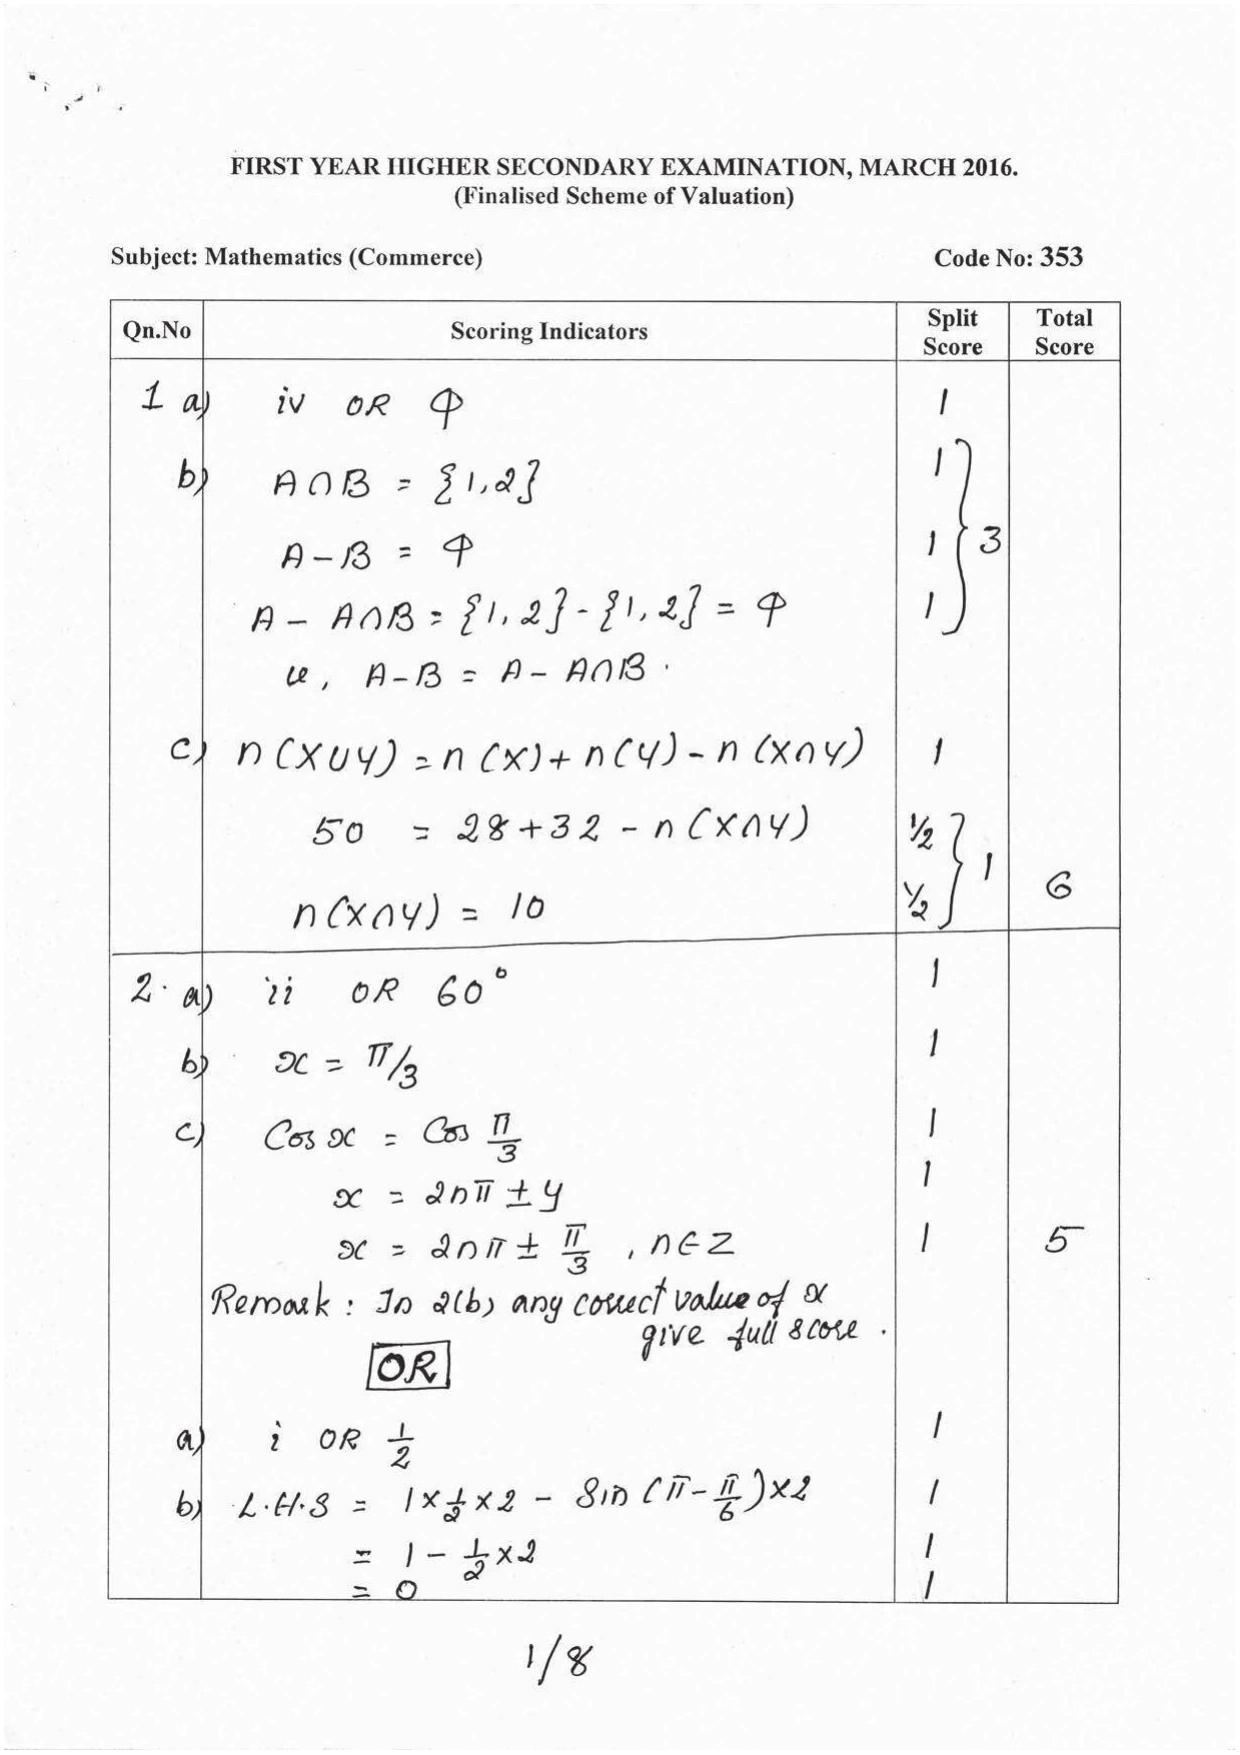 FIRST YEAR HIGHER SECONDARY EXAMINATION, MARCH 2016.
(Finalised Scheme of Valuation)
Subject: Mathematics (Commerce) Code No: 353
Qn.No Scoring Indicators Split Score Total Score
1 a) iv OR φ 1
b) A∩B = {1,2} 1
A-B = φ 1 } 3
A - A∩B = {1,2} - {1,2} = φ 1
ie, A-B = A - A∩B.
c) n(X∪Y) = n(X) + n(Y) - n(X∩Y) 1
50 = 28+32 - n(X∩Y) 1/2
n(X∩Y) = 10 1/2 } 1 6
2. a) ii OR 60° 1
b) x = π/3 1
c) Cos x = Cos π/3 1
x = 2nπ ± y 1
x = 2nπ ± π/3 , n∈Z 1 5
Remark : In 2(b) any correct value of x
give full score.
OR
a) i OR 1/2 1
b) L.H.S = 1×1/2×2 - Sin(π-π/6)×2 1
= 1 - 1/2×2 1
= 0 1
1/8